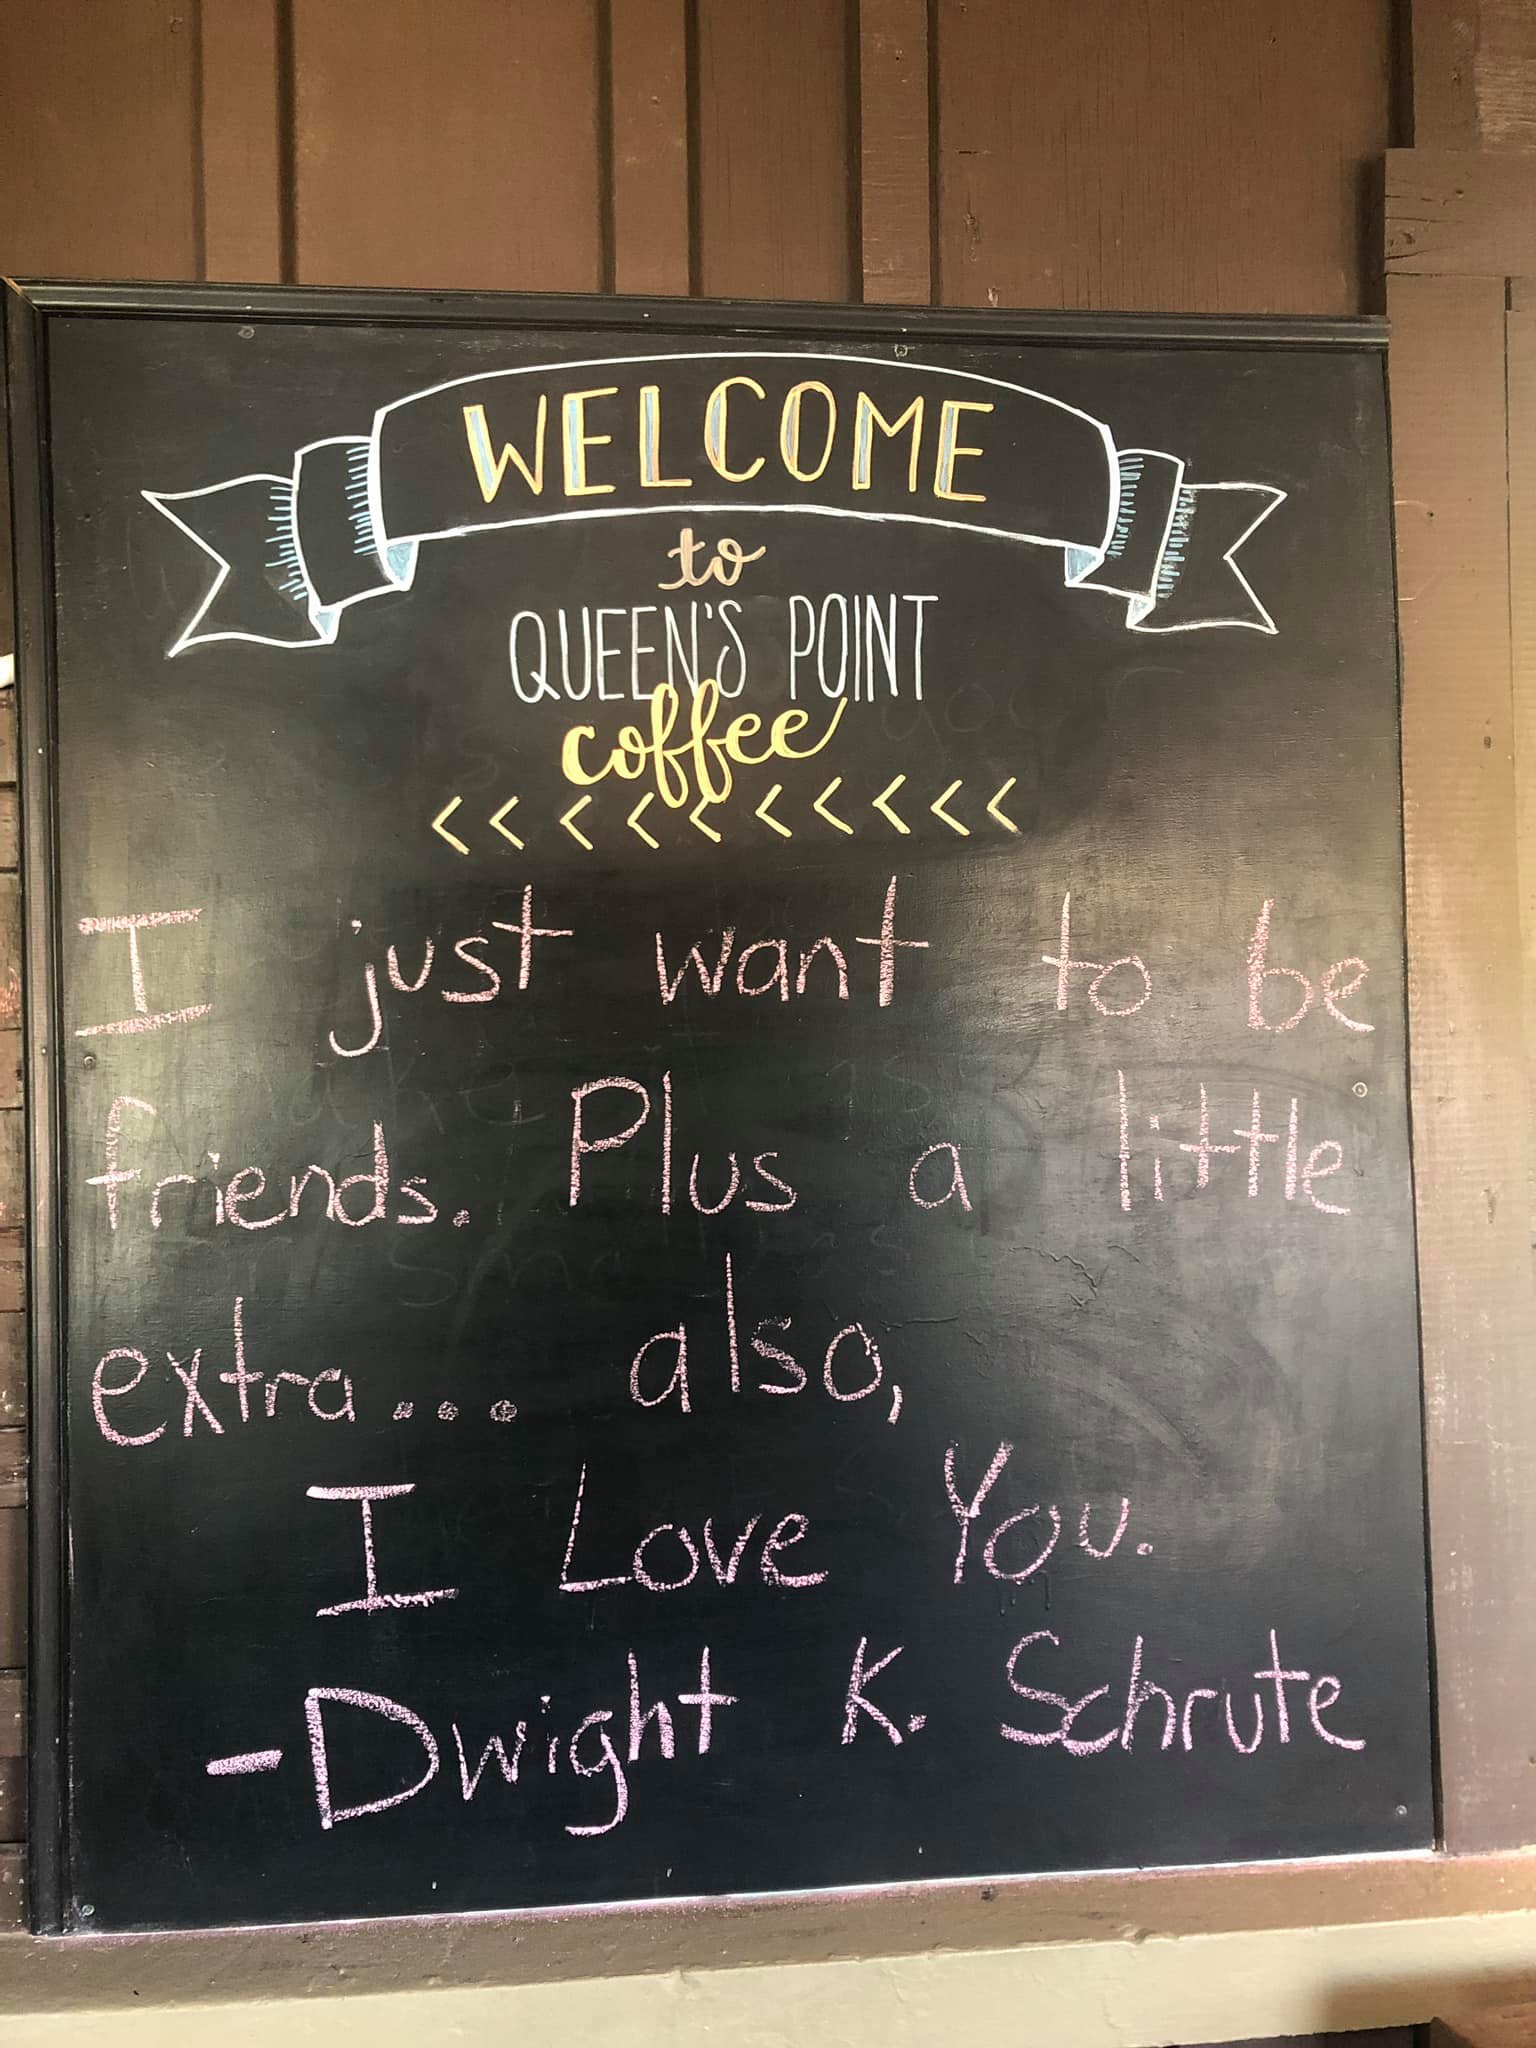 WELCOME
to
QUEEN'S POINT
coffee
<<<<<<<<<<
I just want to be
friends. Plus a little
extra... also,
I Love You.
-Dwight K. Schrute